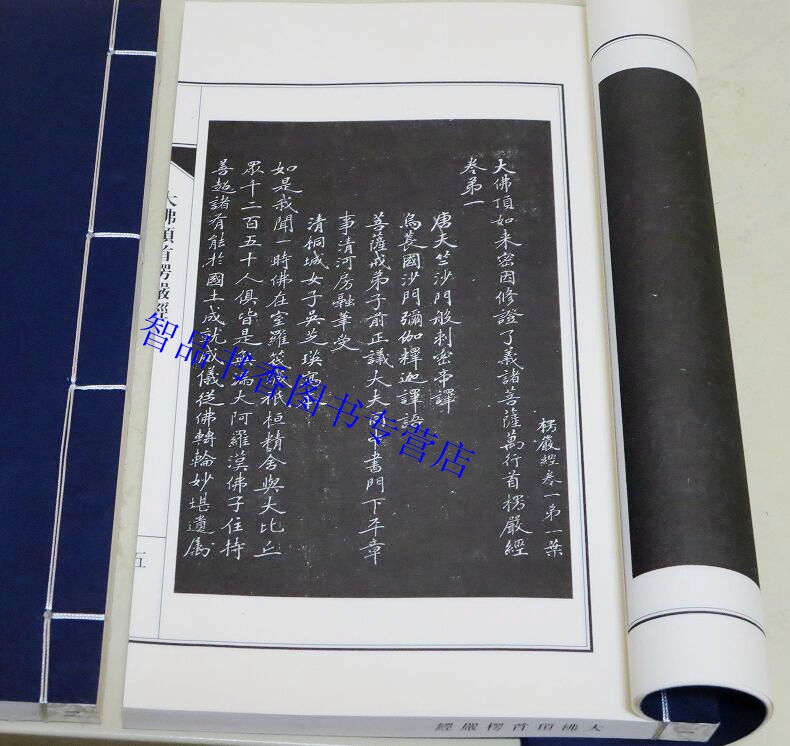 楞嚴經卷一弟一葉
大佛頂如来密因修證了義諸菩薩萬行首楞嚴經
卷弟一
唐天竺沙門般刺密帝譯
烏萇國沙門彌伽釋迦譯語
菩薩戒弟子前正議大夫同中書門下平章
事清河房融筆受
清桐城女子吳芝瑛寫
如是我聞一時佛在室羅筏城祇桓精舍與大比丘
眾千二百五十人俱皆是無漏大阿羅漢佛子住持
善超諸有能於國土成就威儀從佛轉輪妙堪遺属
大佛頂首楞嚴經
五
大佛頂首楞嚴經
智品书香图书专营店